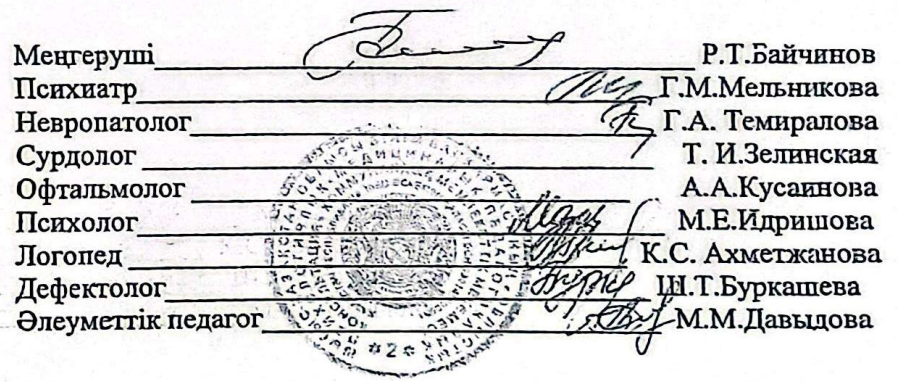 Меңгеруші Р.Т.Байчинов
Психиатр Г.М.Мельникова
Невропатолог Г.А. Темиралова
Сурдолог Т. И.Зелинская
Офтальмолог А.А.Кусаинова
Психолог М.Е.Идришова
Логопед К.С. Ахметжанова
Дефектолог Ш.Т.Буркашева
Әлеуметтік педагог М.М.Давыдова
2